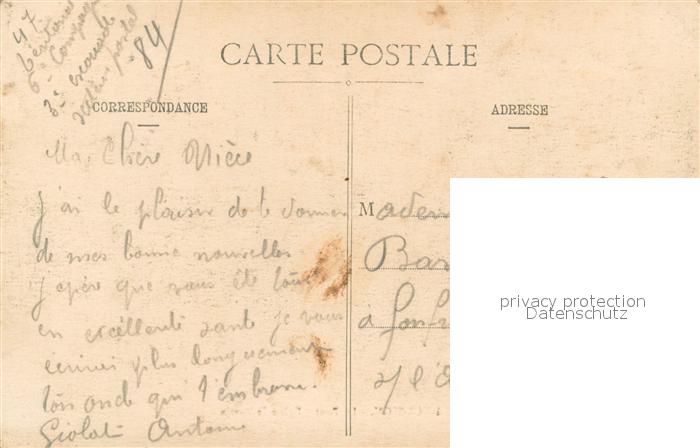 47
6e Compag
3e escouade
secteur postal
84
CARTE POSTALE
CORRESPONDANCE
ADRESSE
Ma Chère Nièce
j'ai le plaisir de te donner
de mes bonne nouvelles
j'espère que vous ete tous
en excellente sante je vous
écrirai plus longuement
ton oncle qui t'embrasse.
Giolat Antoine
Madem
Bar
a
privacy protection
Datenschutz